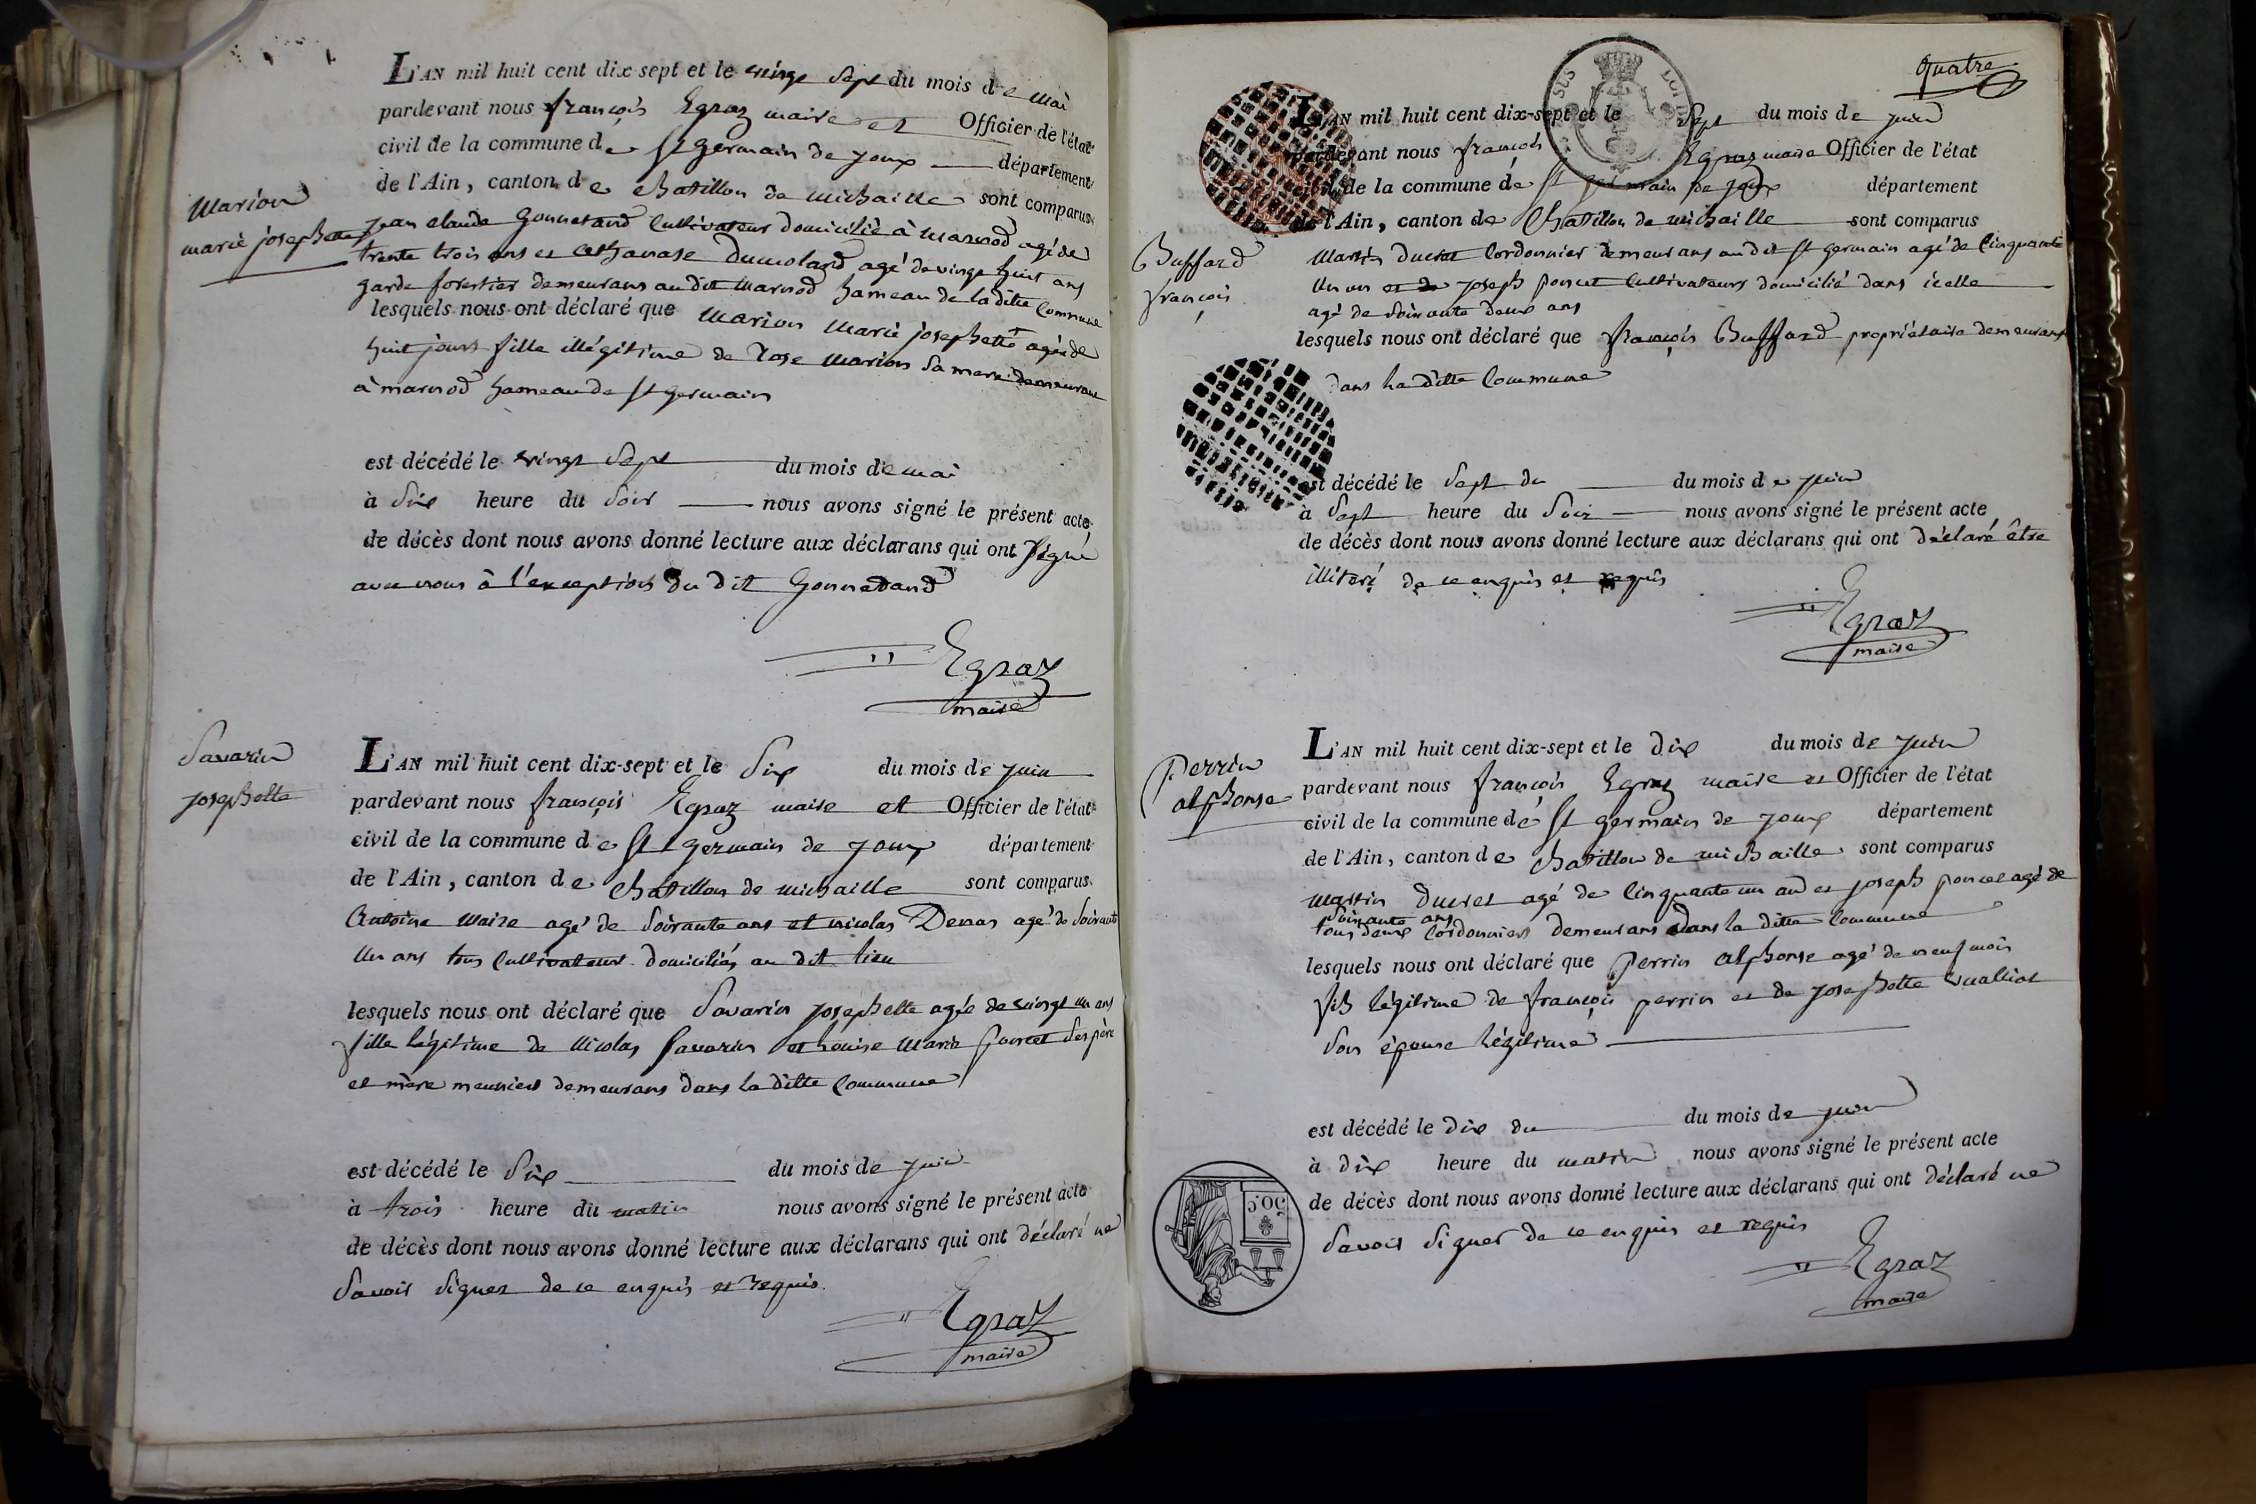 L'AN mil huit cent dix sept et le vingt sept du mois de mai
pardevant nous françois Egraz maire et Officier de l'état
civil de la commune de St germain de joux département
de l'Ain, canton de chatillon de michaille sont comparus
Marion
marie josephette
jean claude Gonnetand Cultivateur domicilié à marnod agé de
trente trois ans et Athanase Dumolard agé de vingt huit ans
garde forestier demeurans au dit marnod hameau de la ditte Commune
lesquels nous ont déclaré que Marion Marie josephette agée de
huit jours fille illégitime de Rose Marion Sa mere demeurant
à marnod hameau de St germain
est décédé le vingt Sept du mois de mai
à Six heure du Soir nous avons signé le présent acte
de décès dont nous avons donné lecture aux déclarans qui ont Signé
avec nous à l'exception du dit Gonnetand
Egraz
maire
Savarin
josephette
L'AN mil huit cent dix-sept et le Six du mois de juin
pardevant nous françois Egraz maire et Officier de l'état
civil de la commune de St germain de joux département
de l'Ain, canton de chatillon de michaille sont comparus
Antoine Maire agé de Soixante ans et nicolas agé de Soixante
Un ans tous Cultivateurs domiciliés au dit lieu
lesquels nous ont déclaré que Savarin josephette agée de vingt un ans
fille légitime de Nicolas Savarin et Louise Marie poncet Ses père
et mère meuniers demeurans dans la ditte Commune
est décédé le Six du mois de juin
à trois heure du matin nous avons signé le présent acte
de décès dont nous avons donné lecture aux déclarans qui ont déclaré ne
Savoir Signer de ce enquis et requis.
Egraz
maire
Quatre
L'AN mil huit cent dix-sept et le Sept du mois de juin
pardevant nous françois Egraz maire Officier de l'état
civil de la commune de St germain de joux département
de l'Ain, canton de Chatillon de michaille sont comparus
Buffard
françois
Martin Ducret Cordonnier demeurans au dit St germain agé de Cinquante
Un an et de joseph poncet Cultivateurs domicilié dans icelle
agé de Soixante deux ans
lesquels nous ont déclaré que françois Buffard propriétaire demeurant
dans La ditte Commune
est décédé le Sept du du mois de juin
à Sept heure du Soir nous avons signé le présent acte
de décès dont nous avons donné lecture aux déclarans qui ont déclaré être
illitéré de ce enquis et requis
Egraz
maire
Perrin
alphonse
L'AN mil huit cent dix-sept et le dix du mois de juin
pardevant nous françois Egraz maire et Officier de l'état
civil de la commune de St germain de joux département
de l'Ain, canton de chatillon de michaille sont comparus
Martin Ducret agé de Cinquante un an et joseph poncet agé de
Soixante ans
tous deux Cordonniers demeurans dans la ditte Commune
lesquels nous ont déclaré que Perrin alphonse agé de neuf mois
fils légitime de françois perrin et de josephette
Son épouse légitime
est décédé le dix du du mois de juin
à dix heure du matin nous avons signé le présent acte
de décès dont nous avons donné lecture aux déclarans qui ont déclaré ne
Savoir Signer de ce enquis et requis
50c
Egraz
maire